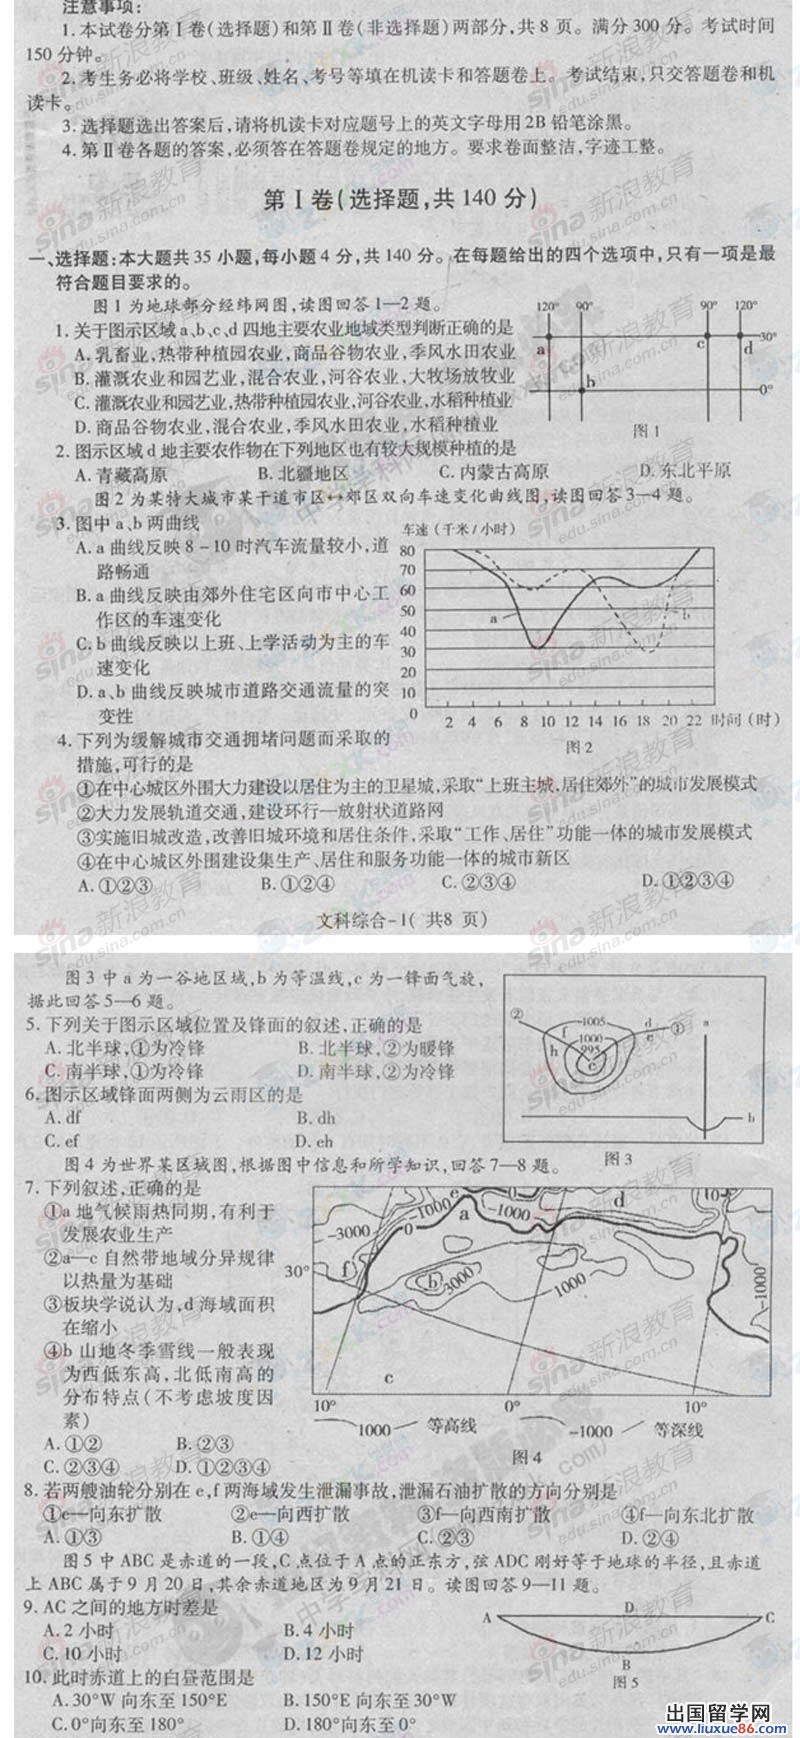 注意事项:
1.本试卷分第Ⅰ卷(选择题)和第Ⅱ卷(非选择题)两部分,共8页。满分300分。考试时间
150分钟。
2.考生务必将学校、班级、姓名、考号等填在机读卡和答题卷上。考试结束,只交答题卷和机
读卡。
3.选择题选出答案后,请将机读卡对应题号上的英文字母用2B铅笔涂黑。
4.第Ⅱ卷各题的答案,必须答在答题卷规定的地方。要求卷面整洁,字迹工整。
第Ⅰ卷(选择题,共140分)
一、选择题:本大题共35小题,每小题4分,共140分。在每题给出的四个选项中,只有一项是最
符合题目要求的。
图1为地球部分经纬网图,读图回答1—2题。
1.关于图示区域a、b、c、d四地主要农业地域类型判断正确的是
A.乳畜业,热带种植园农业,商品谷物农业,季风水田农业
B.灌溉农业和园艺业,混合农业,河谷农业,大牧场放牧业
C.灌溉农业和园艺业,热带种植园农业,河谷农业,水稻种植业
D.商品谷物农业,混合农业,季风水田农业,水稻种植业
120° 90° 90° 120°
30°
a b c d
0°
图1
2.图示区域d地主要农作物在下列地区也有较大规模种植的是
A.青藏高原 B.北疆地区 C.内蒙古高原 D.东北平原
图2为某特大城市某干道市区↔郊区双向车速变化曲线图,读图回答3—4题。
3.图中a、b两曲线
A.a曲线反映8-10时汽车流量较小,道
路畅通
B.a曲线反映由郊外住宅区向市中心工
作区的车速变化
C.b曲线反映以上班、上学活动为主的车
速变化
D.a、b曲线反映城市道路交通流量的突
变性
车速(千米/小时)
80
70
60
50
40
30
20
10
0
a b
2 4 6 8 10 12 14 16 18 20 22 时间(时)
图2
4.下列为缓解城市交通拥堵问题而采取的
措施,可行的是
①在中心城区外围大力建设以居住为主的卫星城,采取“上班主城,居住郊外”的城市发展模式
②大力发展轨道交通,建设环行—放射状道路网
③实施旧城改造,改善旧城环境和居住条件,采取“工作、居住”功能一体的城市发展模式
④在中心城区外围建设集生产、居住和服务功能一体的城市新区
A.①②③ B.①②④ C.②③④ D.①②③④
文科综合-1(共8页)
图3中a为一谷地区域,b为等温线,c为一锋面气旋,
据此回答5—6题。
5.下列关于图示区域位置及锋面的叙述,正确的是
A.北半球,①为冷锋 B.北半球,②为暖锋
C.南半球,①为冷锋 D.南半球,②为冷锋
6.图示区域锋面两侧为云雨区的是
A.df B.dh
C.ef D.eh
② f 1005 d ① a
h 1000 e
995
c
b
图3
图4为世界某区域图,根据图中信息和所学知识,回答7—8题。
7.下列叙述,正确的是
①a地气候雨热同期,有利于
发展农业生产
②a—c自然带地域分异规律
以热量为基础
③板块学说认为,d海域面积
在缩小
④b山地冬季雪线一般表现
为西低东高,北低南高的
分布特点(不考虑坡度因
素)
A.①② B.②③
C.②③④ D.①②③④
-3000 e 0 -1000 a -1000 d
30° f b 3000 1000 -1000
c
10° 0° 10°
1000 等高线 -1000 等深线
图4
8.若两艘油轮分别在e,f两海域发生泄漏事故,泄漏石油扩散的方向分别是
①e—向东扩散 ②e—向西扩散 ③f—向西南扩散 ④f—向东北扩散
A.①③ B.①④ C.②③ D.②④
图5中ABC是赤道的一段,C点位于A点的正东方,弦ADC刚好等于地球的半径,且赤道
上ABC属于9月20日,其余赤道地区为9月21日。读图回答9—11题。
9.AC之间的地方时差是
A.2小时 B.4小时
C.10小时 D.12小时
A D C
B
图5
10.此时赤道上的白昼范围是
A.30°W向东至150°E B.150°E向东至30°W
C.0°向东至180° D.180°向东至0°
出国留学网
www.liuxue86.com